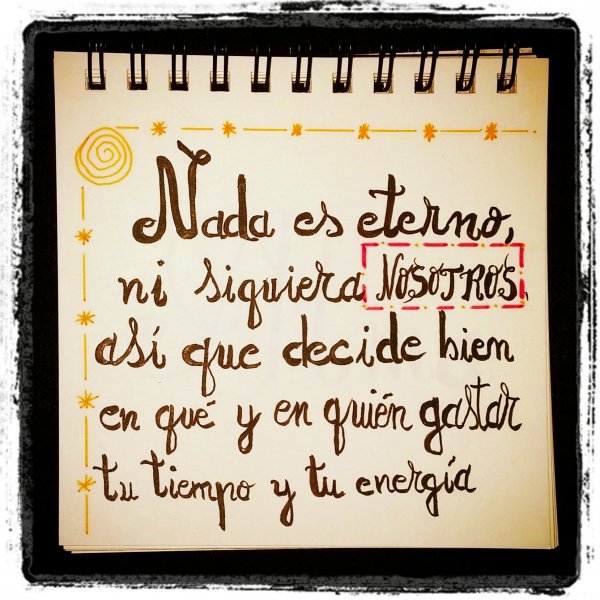 Nada es eterno,
ni siquiera NOSOTROS,
así que decide bien
en qué y en quién gastar
tu tiempo y tu energía